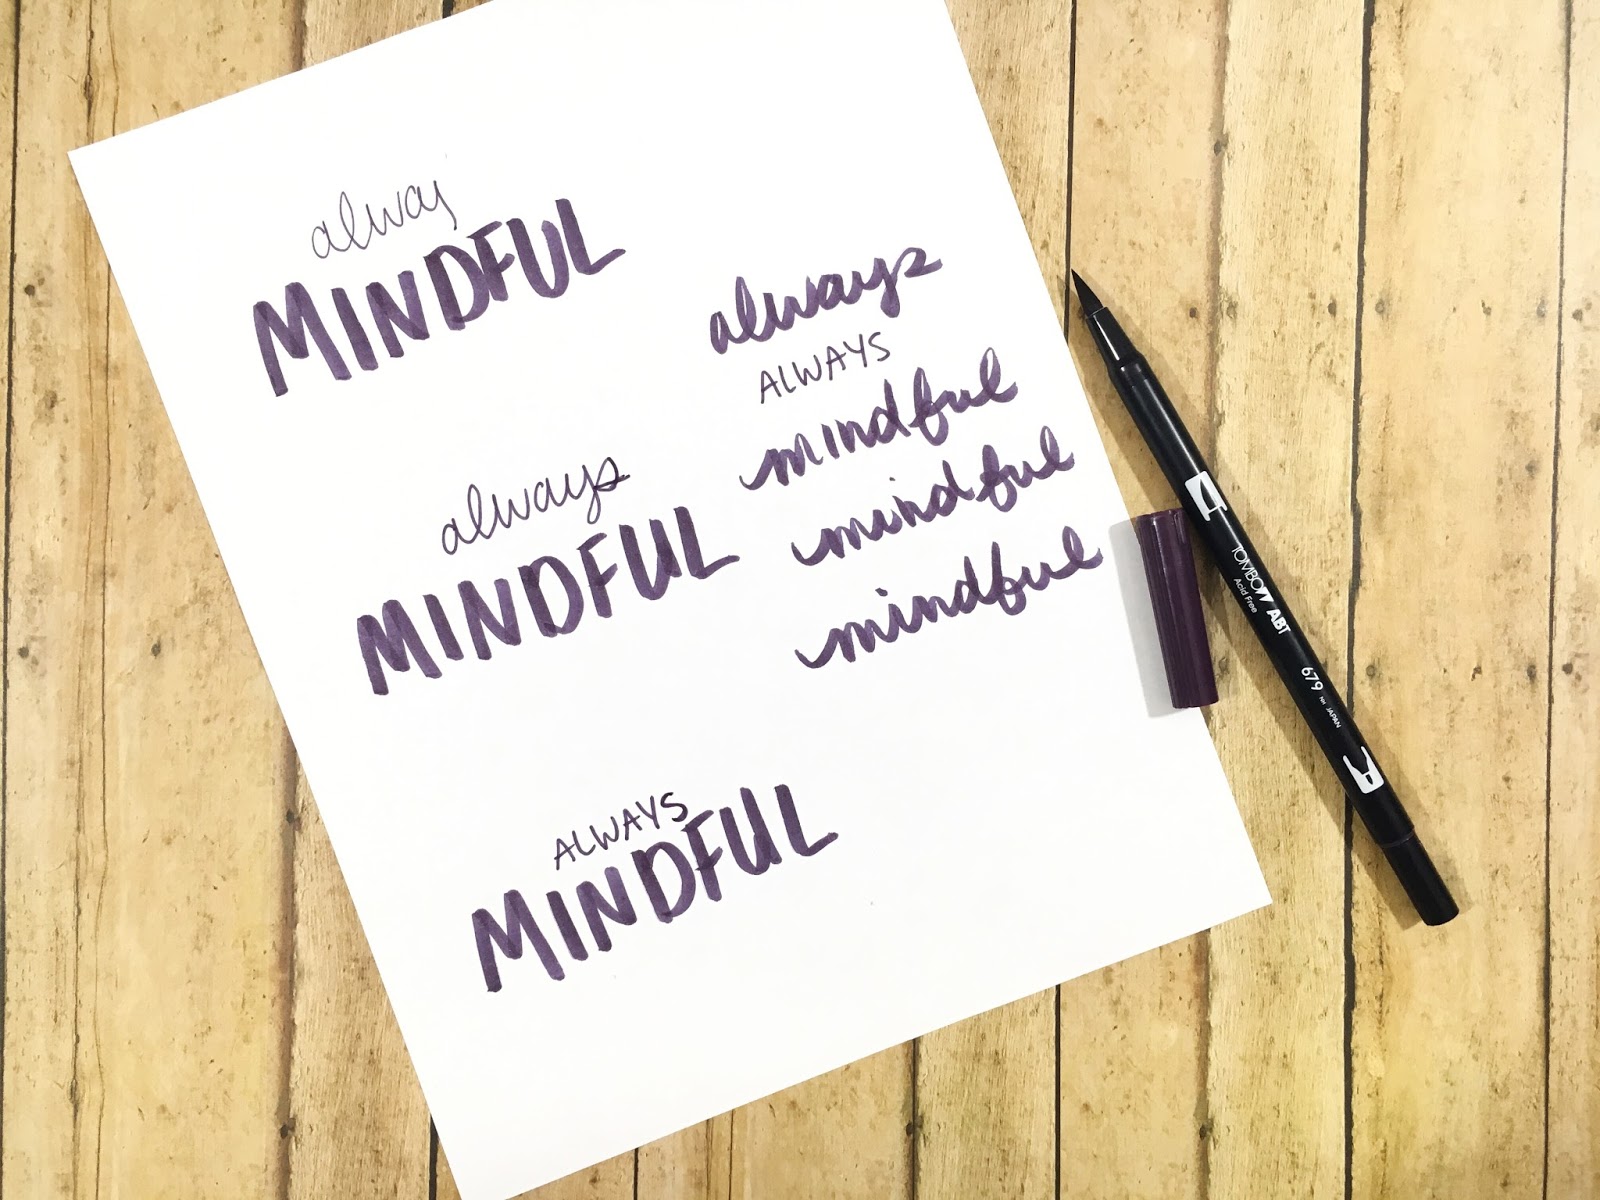 alway
MINDFUL
always
MINDFUL
ALWAYS
MINDFUL
always
ALWAYS
mindful
mindful
mindful
TOMBOW ABT
Acid Free
679 JAPAN